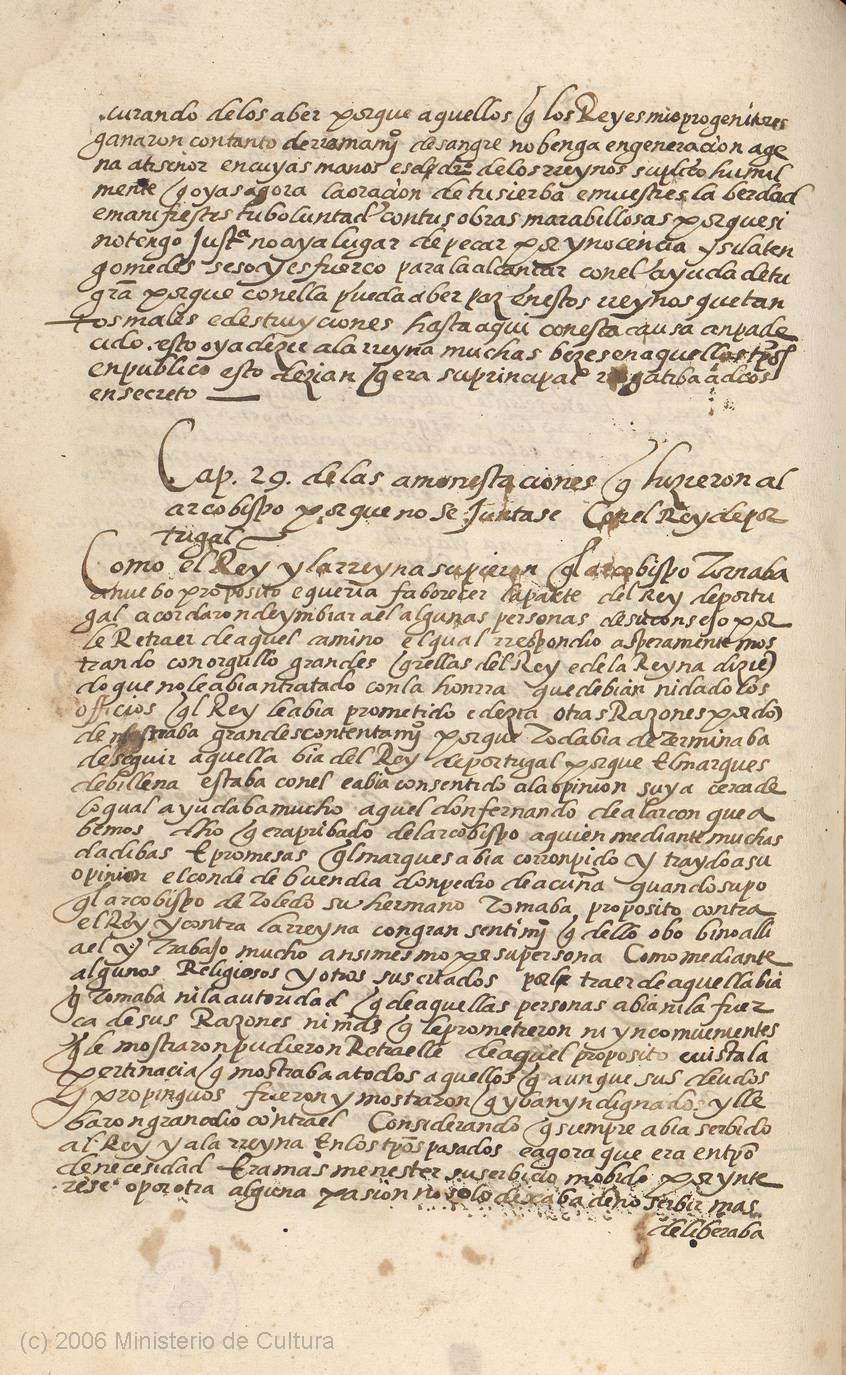 curando de los aber porque aquellos q los Reyes mis progenitores
ganaron con tanto derramamjº de sangre no benga en generacion age
na a ti señor en cuyas manos es el drº de los rreynos suplico humil
mente q oyas agora la oracion de tu sierba e muestres la berdad
e manifiestes tu boluntad con tus obras marabillosas porque si
no tengo Justª no aya lugar de pecar por ynocencia y si la ten
go me des seso y esfuerco para la alcancar con el ayuda de tu
grã porque con ella pueda aber paz en estos rreynos que tan
tos males e destruyciones hasta aqui con esta causa an pade
cido. esto oya dezir a la rreyna muchas bezes en aquellos tpos
en publico esto dezian q era su principal rogatiba a dios
en secreto
Cap. 29. de las amonestaciones q hizieron al
arcobispo porque no se Juntase con el Rey de por
tugal
Como el Rey y la rreyna supieron ql arcobispo tornaba
a nuebo proposito e queria faborecer la parte del Rey de portu
gal acordaron de ymbiar a el algunas personas de su consejo por
le Retraer de aquel camino el qual rrespondio asperamente mos
trando con orgullo grandes qrellas del Rey e de la Reyna dizie
do que no le abian tratado con la honrra que debian ni dado los
officios ql Rey le abia prometido e dezia otras Razones por do
de mostraba grand descontentamjº porque todabia determinaba
de seguir aquella bia del Rey de portugal porque el marques
de billena estaba con el e abia consentido a la opinion suya cerca de
lo qual ayudaba mucho aquel don fernando de alarcon que a
bemos dho q era pribado del arcobispo a quien mediante muchas
dadibas e promesas ql marques abia corronpido y traydo a su
opinion el conde de buendia don pedro de acuña quando supo
ql arcobispo de toledo su hermano tomaba proposito contra
el Rey y contra la rreyna con gran sentimjº q dello obo bino alli
a el y trabajo mucho ansimesmo por su persona Como mediante
algunos Religiosos y otros sus criados por le traer de aquella bia
q tomaba ni la autoridad q de aquellas personas abia ni la fuer
ca de sus Razones ni mds q le prometieron ni ynconuenientes
q le mostraron pudieron Retraelle de aquel proposito e uista la
pertinacia q mostraba a todos aquellos q aunque sus deudos
y propinquos fueron y mostraron q yban yndignados y lle
baron gran odio contra el Considerando q siempre abia serbido
al Rey y a la rreyna en los tpos pasados e agora que era en tpo
de necesidad e era mas menester su serbicio mobido por ynte
rese o por otra alguna pasion no solo dexaba de no serbir mas
deliberaba
(c) 2006 Ministerio de Cultura